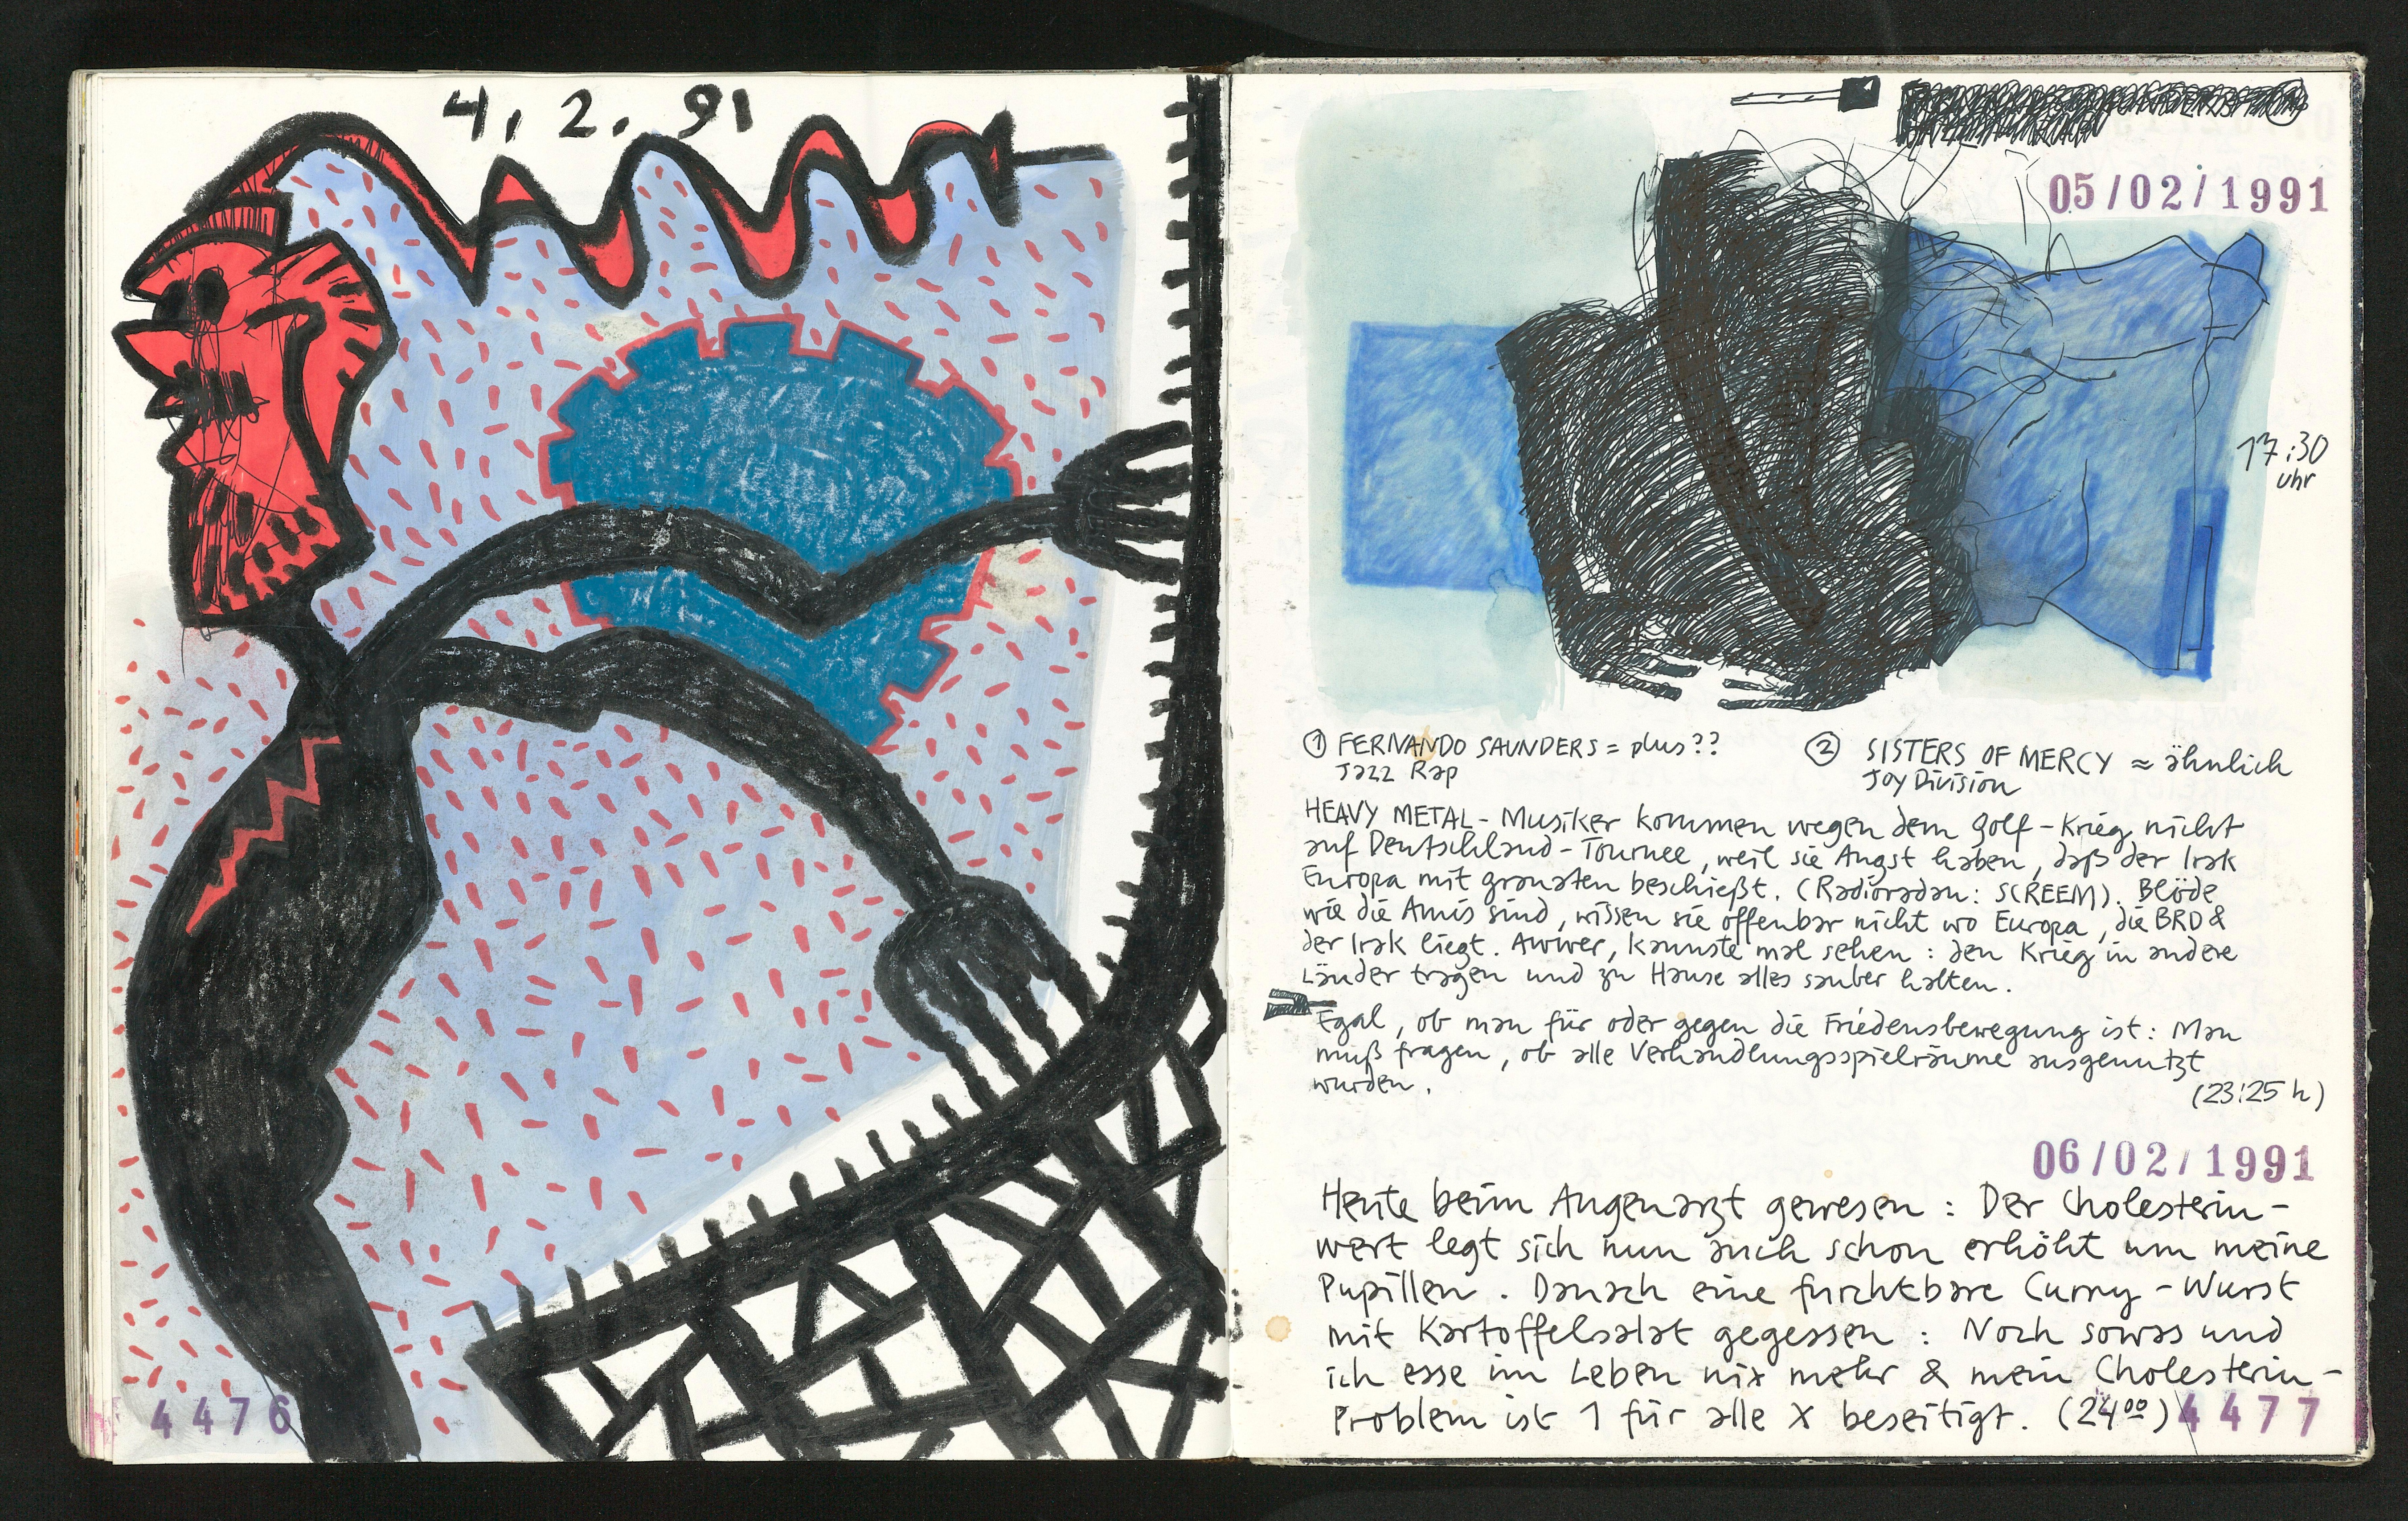 4. 2. 91
4476
05/02/1991
17:30
Uhr
① FERNANDO SAUNDERS = plus??
Jazz Rap
② SISTERS OF MERCY ≈ ähnlich
Joy Division
HEAVY METAL - Musiker kommen wegen dem Golf-Krieg nicht
auf Deutschland-Tournee, weil sie Angst haben, daß der Irak
Europa mit granaten beschießt. (Radioradau: SCREEM). Blöde
wie die Amis sind, wissen sie offenbar nicht wo Europa, die BRD &
der Irak liegt. Awwer, kannste mal sehen: den Krieg in andere
Länder tragen und zu Hause alles sauber halten.
Egal, ob man für oder gegen die Friedensbewegung ist: Man
muß fragen, ob alle Verhandlungsspielräume ausgenutzt
wurden.
(23:25 h)
06/02/1991
Heute beim Augenarzt gewesen: Der Cholesterin-
wert legt sich nun auch schon erhöht um meine
Pupillen. Danach eine furchtbare Curry-Wurst
mit Kartoffelsalat gegessen: Noch sowas und
ich esse im Leben nix mehr & mein Cholesterin-
Problem ist 1 für alle X beseitigt. (24⁰⁰)
4477